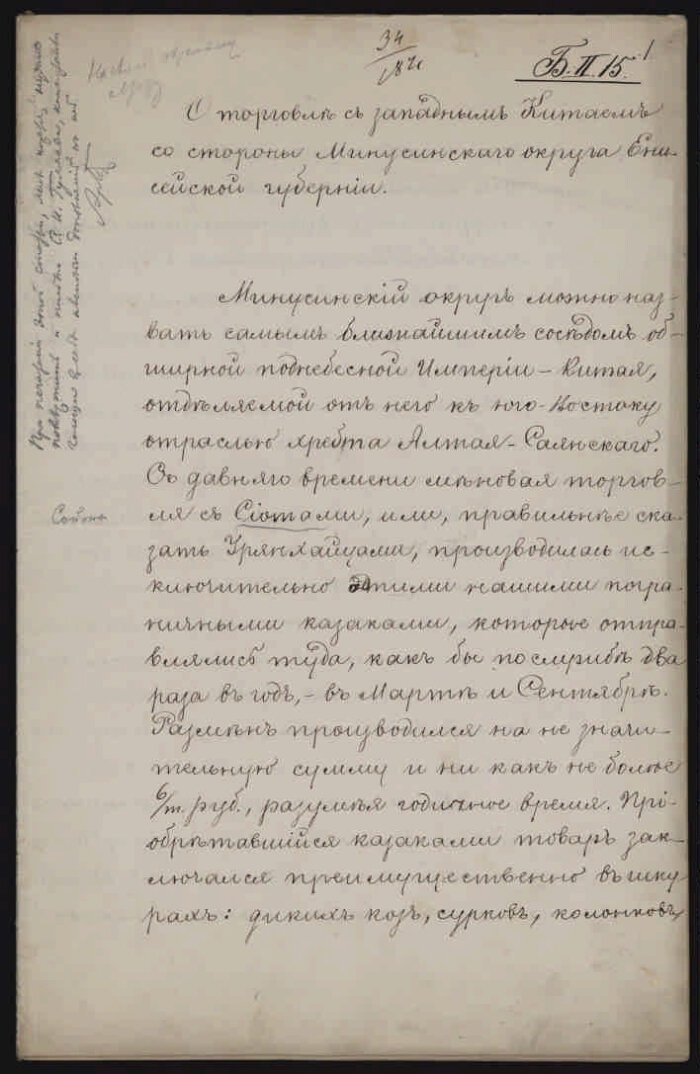 34
1871
Б. II. 15. 1
О торговлѣ съ западнымъ Китаемъ
со стороны Минусинскаго округа Ени-
сейской губерніи.
Минусинскій округъ можно наз-
вать самымъ ближайшимъ сосѣдомъ об-
ширной поднебесной Имперіи – Китая,
отдѣляемой отъ него къ юго-востоку
отраслью хребта Алтая-Саянскаго.
Съ давняго времени мѣновая торгов-
ля съ Сіотами, или, правильнѣе ска-
Сойоты
зать Урянхайцами, производилась ис-
ключительно этими нашими погра-
ничными казаками, которые отпра-
влялись туда, какъ бы по службѣ два
раза въ годъ, – въ Мартѣ и Сентябрѣ.
Размѣнъ производился на не значи-
тельную сумму и ни какъ не болѣе
6/т. руб., разумѣя годичное время. Прі-
обрѣтавшійся казаками товаръ зак-
лючался преимущественно въ шку-
рахъ: дикихъ козъ, сурковъ, колонковъ,
При печатаніи этой статьи